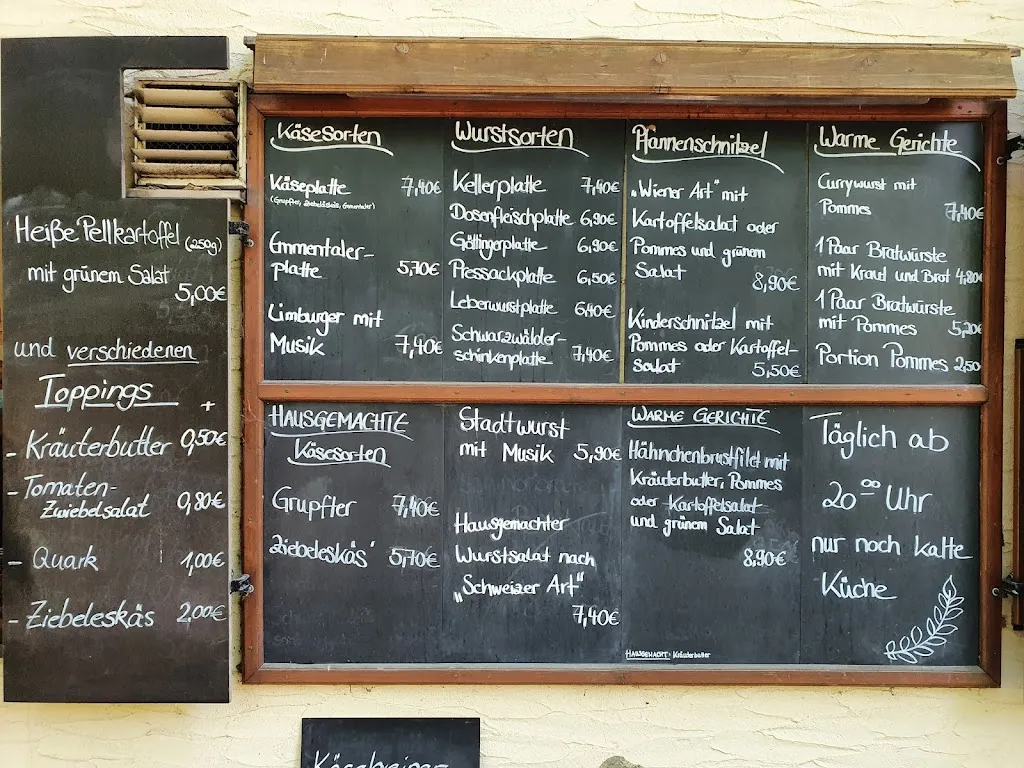 Heiße Pellkartoffel (250g)
mit grünem Salat
5,00€
und verschiedenen
Toppings
+
- Kräuterbutter 0,50€
- Tomaten-
Zwiebelsalat 0,80€
- Quark 1,00€
- Ziebeleskäs 2,00€
Käsesorten
Käseplatte 7,40€
(Grupfter, Ziebeleskäs, Emmentaler)
Emmentaler-
platte 5,70€
Limburger mit
Musik 7,40€
Wurstsorten
Kellerplatte 7,40€
Dosenfleischplatte 6,90€
Göttingerplatte 6,90€
Pressackplatte 6,50€
Leberwurstplatte 6,40€
Schwarzwälder-
schinkenplatte 7,40€
Pfannenschnitzel
„Wiener Art" mit
Kartoffelsalat oder
Pommes und grünem
Salat 8,90€
Kinderschnitzel mit
Pommes oder Kartoffel-
salat 5,50€
Warme Gerichte
Currywurst mit
Pommes 7,40€
1 Paar Bratwürste
mit Kraut und Brot 4,80€
1 Paar Bratwürste
mit Pommes 5,20€
Portion Pommes 2,50
HAUSGEMACHTE
Käsesorten
Grupfter 7,40€
Ziebeleskäs' 5,70€
Stadtwurst
mit Musik 5,90€
Hausgemachter
Wurstsalat nach
„Schweizer Art"
7,40€
WARME GERICHTE
Hähnchenbrustfilet mit
Kräuterbutter, Pommes
oder Kartoffelsalat
und grünem Salat
8,90€
HAUSGEMACHT: Kräuterbutter
Täglich ab
20°° Uhr
nur noch kalte
Küche